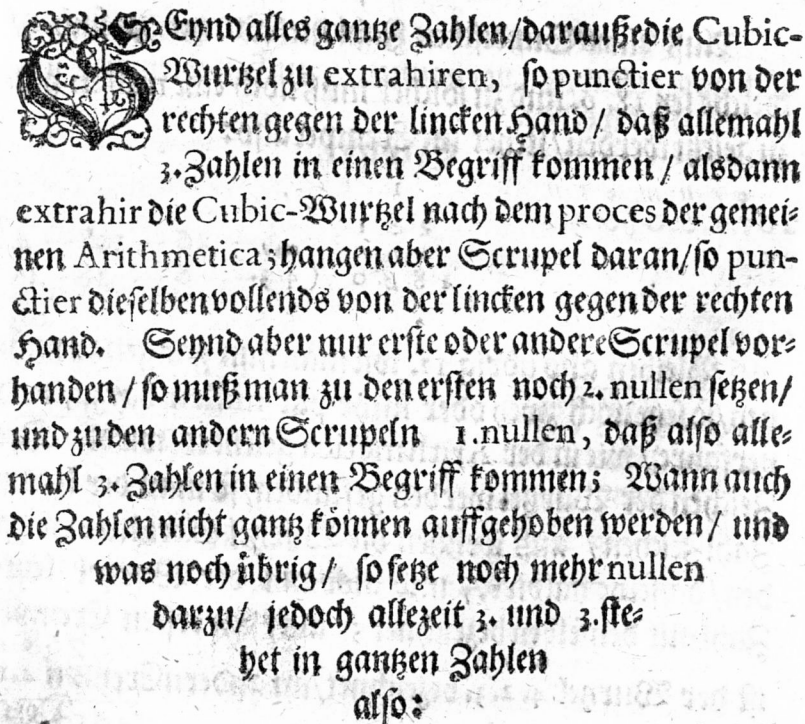 SEynd alles gantze Zahlen/daraußedie Cubic-
Wurtzel zu extrahiren, so punctier von der
rechten gegen der lincken Hand / daß allemahl
3. Zahlen in einen Begriff kommen / alsdann
extrahir die Cubic-Wurtzel nach dem proces der gemei-
nen Arithmetica; hangen aber Scrupel daran/so pun-
ctier dieselben vollends von der lincken gegen der rechten
Hand. Seynd aber nur erste oder andere Scrupel vor-
handen / so muß man zu den ersten noch 2. nullen setzen/
und zu den andern Scrupeln 1. nullen, daß also alle-
mahl 3. Zahlen in einen Begriff kommen; Wann auch
die Zahlen nicht gantz können auffgehoben werden / und
was noch übrig / so setze noch mehr nullen
darzu/ jedoch allezeit 3. und 3. ste-
het in gantzen Zahlen
also: